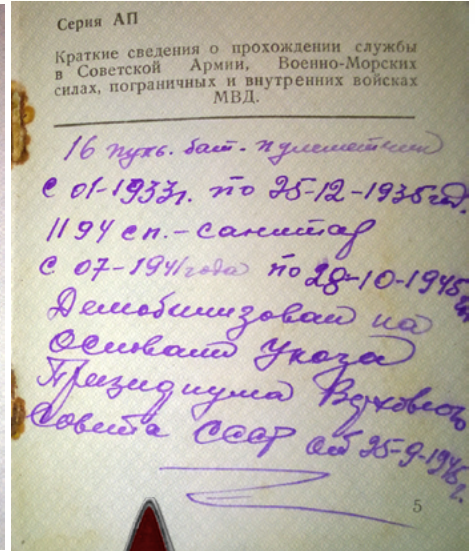 Серия АП
Краткие сведения о прохождении службы
в Советской Армии, Военно-Морских
силах, пограничных и внутренних войсках
МВД.
16 пульб. бат. - пулеметчик
с 01-1933г. по 25-12-1935 год.
1194 сп. - санитар
с 07-1941 года по 28-10-1945
Демобилизован на
основании Указа
Президиума Верховного
Совета СССР от 25-9-1945
г.
5